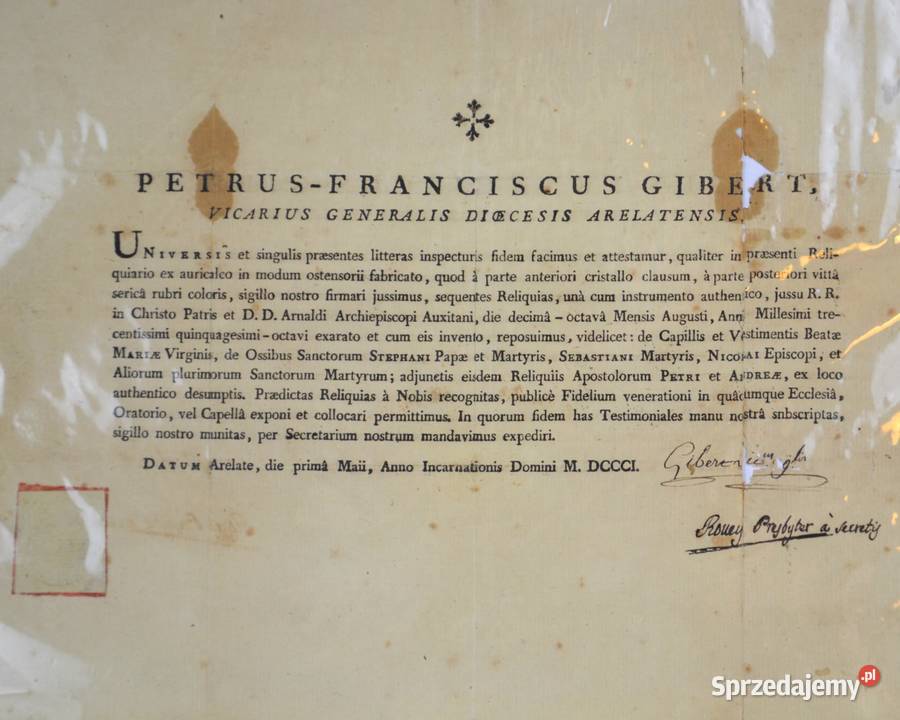 PETRUS-FRANCISCUS GIBERT,
VICARIUS GENERALIS DIŒCESIS ARELATENSIS,
UNIVERSIS et singulis præsentes litteras inspecturis fidem facimus et attestamur, qualiter in præsenti Reli-
quiario ex auricalco in modum ostensorii fabricato, quod à parte anteriori cristallo clausum, à parte posteriori vittâ
sericâ rubri coloris, sigillo nostro firmari jussimus, sequentes Reliquias, unà cum instrumento authentico, jussu R. R.
in Christo Patris et D. D. Arnaldi Archiepiscopi Auxitani, die decimâ-octavâ Mensis Augusti, Ann Millesimi tre-
centissimi quinquagesimi-octavi exarato et cum eis invento, reposuimus, videlicet: de Capillis et Vestimentis Beatæ
MARIÆ Virginis, de Ossibus Sanctorum STEPHANI Papæ et Martyris, SEBASTIANI Martyris, NICOLAI Episcopi, et
Aliorum plurimorum Sanctorum Martyrum; adjunctis eisdem Reliquiis Apostolorum PETRI et ANDREÆ, ex loco
authentico desumptis. Prædictas Reliquias à Nobis recognitas, publicè Fidelium venerationi in quâcumque Ecclesiâ,
Oratorio, vel Capellâ exponi et collocari permittimus. In quorum fidem has Testimoniales manu nostrâ snbscriptas,
sigillo nostro munitas, per Secretarium nostrum mandavimus expediri.
DATUM Arelate, die primâ Maii, Anno Incarnationis Domini M. DCCCI.
Presbyter à secretis
Sprzedajemy.pl